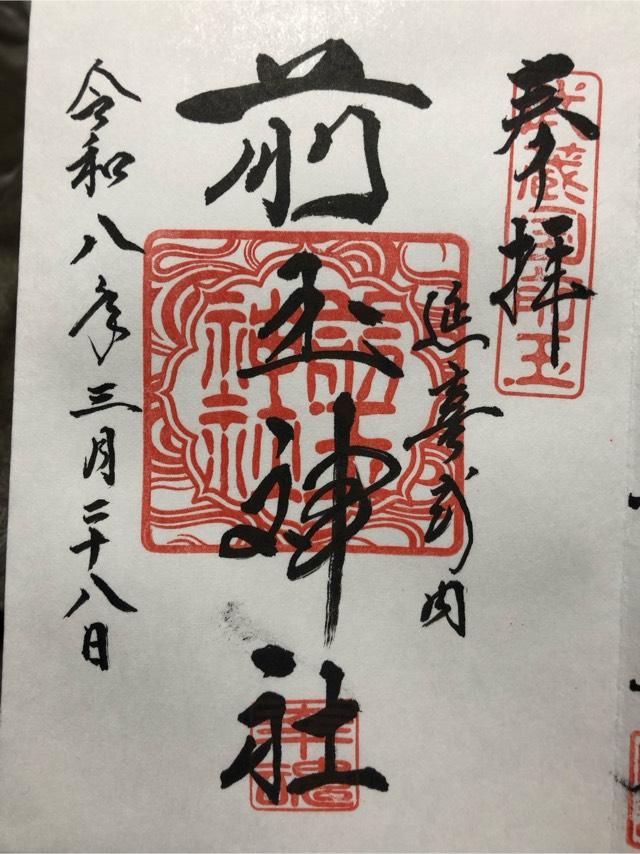 奉拝
武蔵国前玉
延喜式内
前玉神社
前玉神社
令和八年三月二十八日